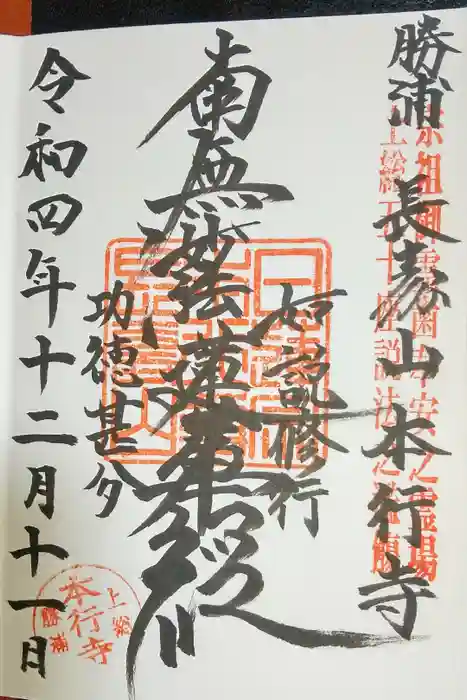 勝浦 長寿山本行寺
宗祖御霊歯奉安之霊場
上総五十座説法之霊蹟
如説修行
南無妙法蓮華経
功徳甚多
令和四年十二月十一日
上総
本行寺
勝浦